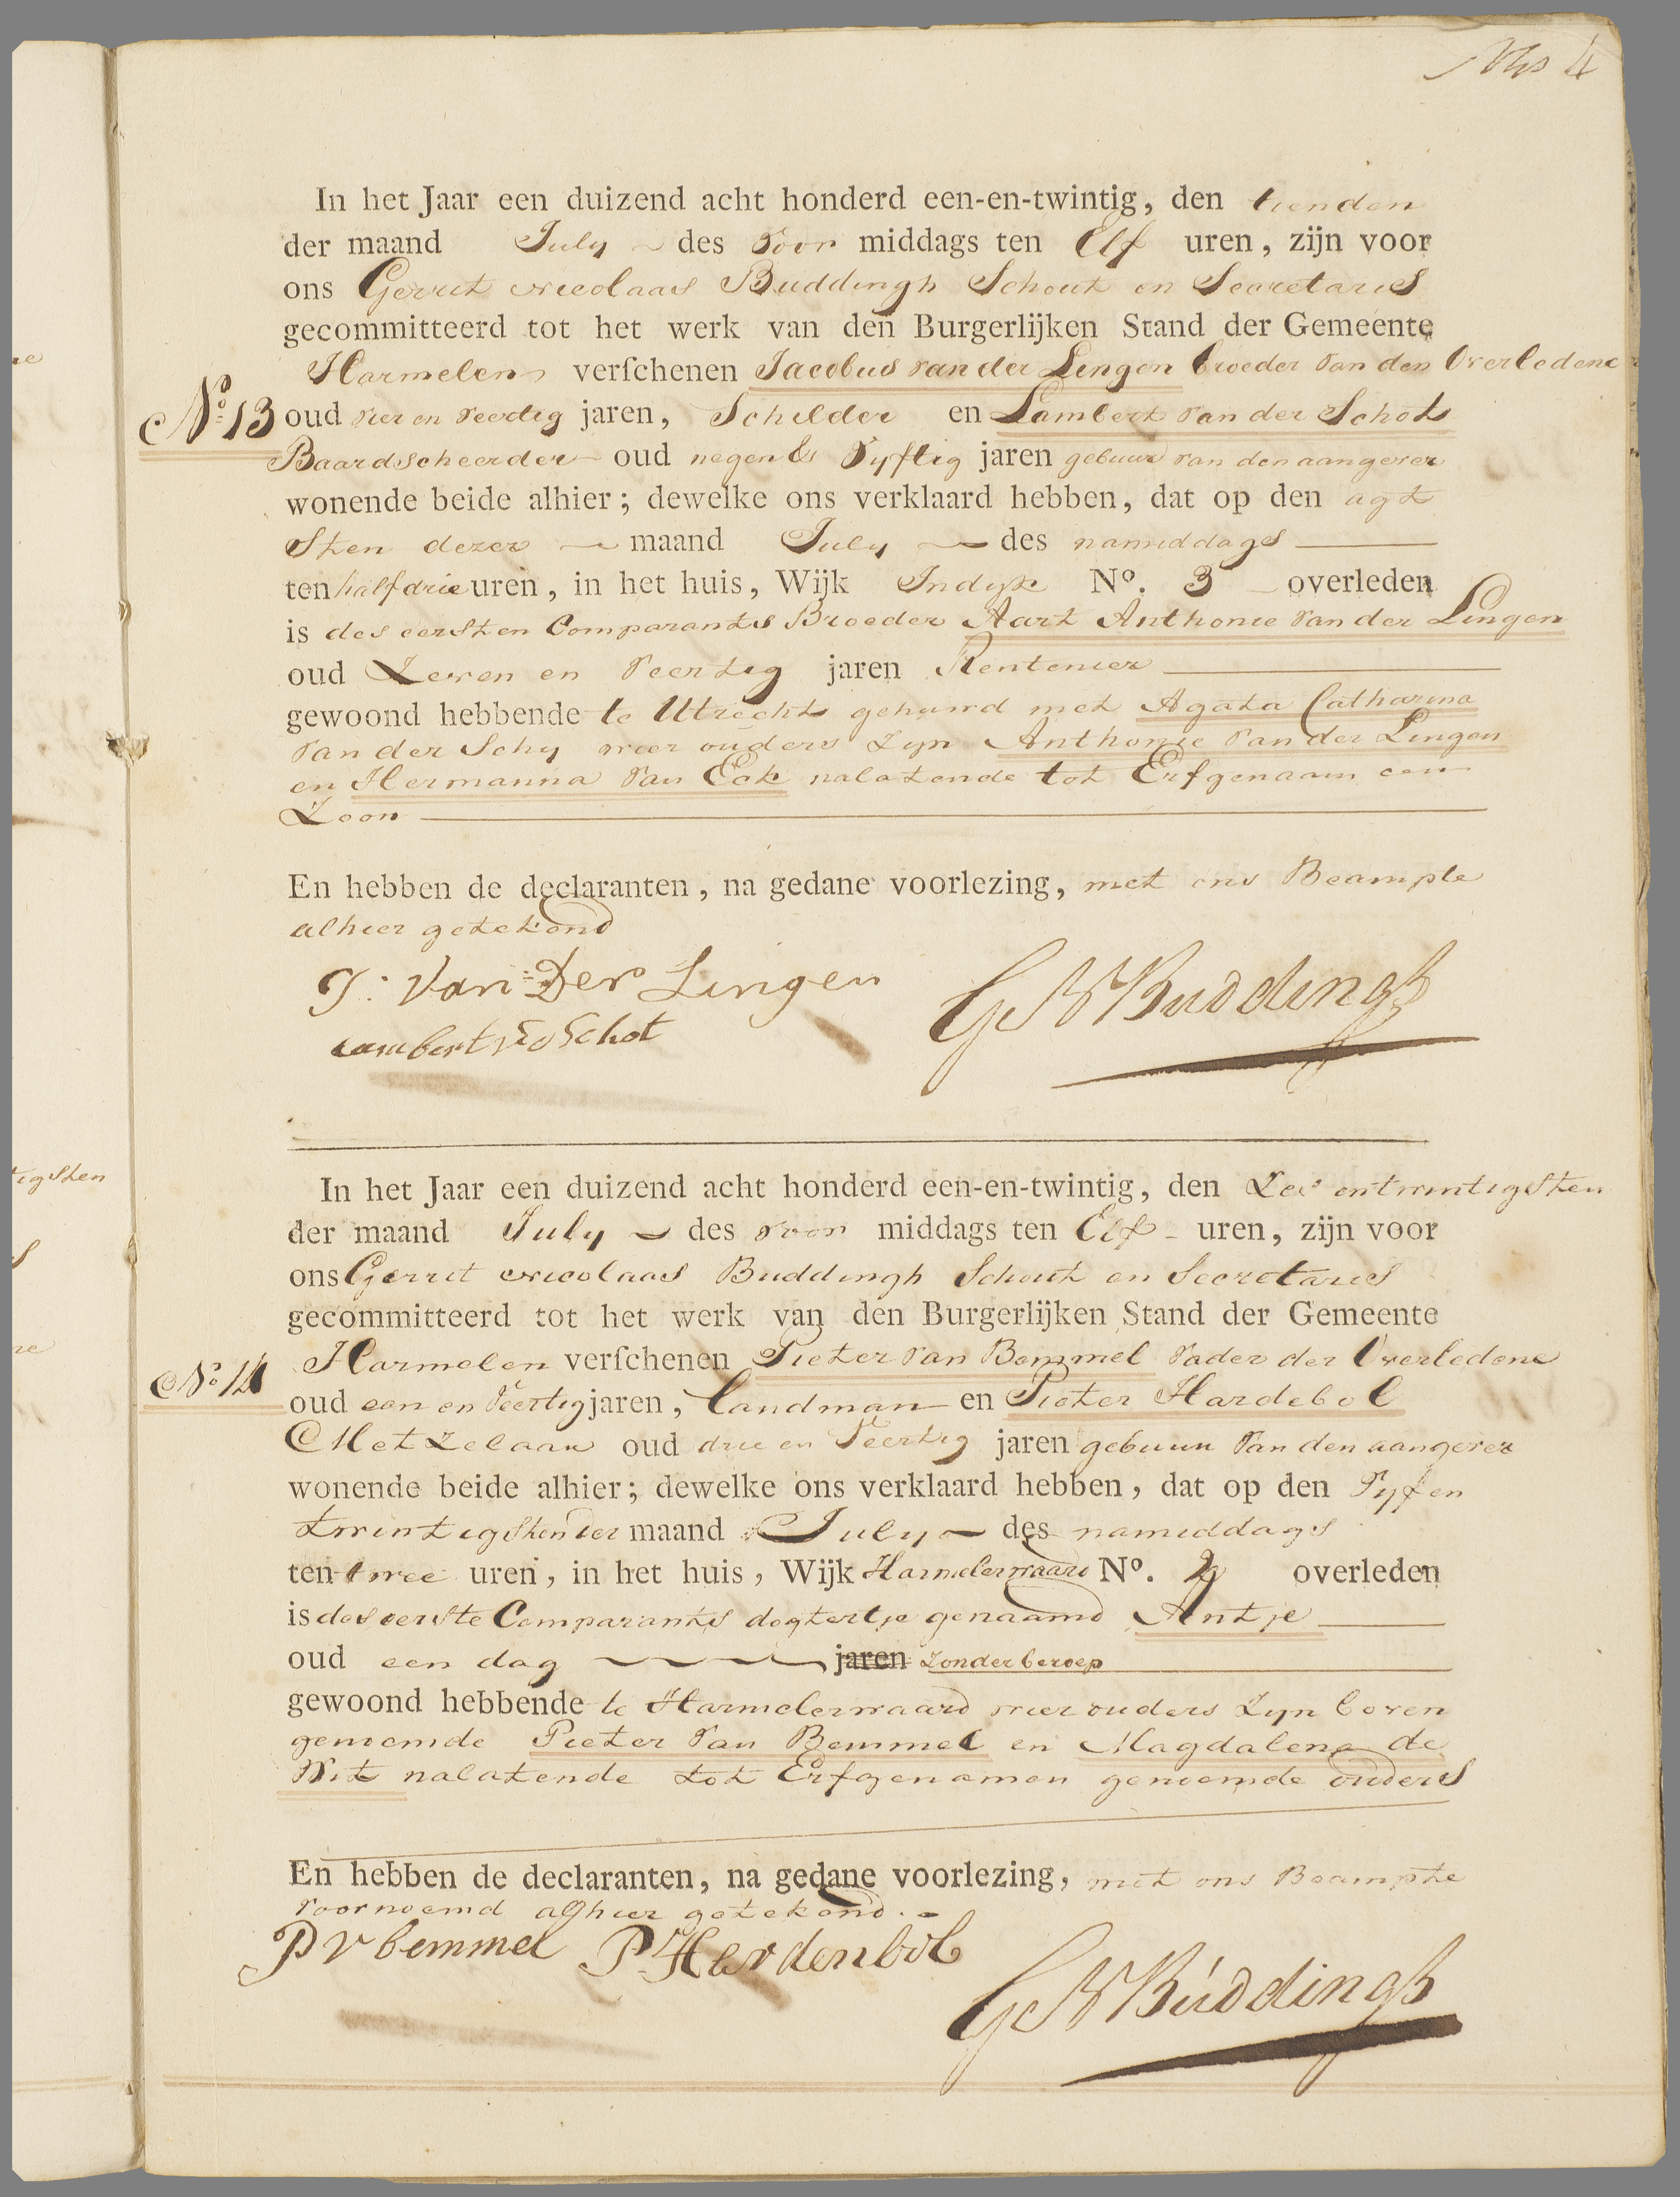 4
In het Jaar een duizend acht honderd een-en-twintig, den tienden
der maand July des voor middags ten Elf uren, zijn voor
ons Gerrit Nicolaas Buddingh Schout en Secretaris
gecommitteerd tot het werk van den Burgerlijken Stand der Gemeente
Harmelen verſchenen Jacobus van der Lingen broeder van den Overledene
No. 13 oud vier en veertig jaren, Schilder en Lambert van der Schot
Baardscheerder oud negen & vyftig jaren gebuur van den aangever
wonende beide alhier; dewelke ons verklaard hebben, dat op den agt
sten dezer maand July des namiddags
ten half drie uren, in het huis, Wijk Indijk No. 3 overleden
is des eersten Comparants Broeder Aart Anthonie van der Lingen
oud Zeven en veertig jaren Rentenier
gewoond hebbende te Utrecht gehuwd met Agata Catharina
van der Schy wier ouders zyn Anthonie van der Lingen
en Hermanna van Eck nalatende tot Erfgenaam een
Zoon
En hebben de declaranten, na gedane voorlezing, met ons Beampte
alhier getekend
J: Van Der Lingen
Lambert vd Schot
G N Buddingh
In het Jaar een duizend acht honderd een-en-twintig, den Zes entwintigsten
der maand July des voor middags ten Elf uren, zijn voor
ons Gerrit Nicolaas Buddingh Schout en Secretaris
gecommitteerd tot het werk van den Burgerlijken Stand der Gemeente
No. 14 Harmelen verſchenen Pieter van Bemmel vader der Overledene
oud een en veertig jaren, Landman en Pieter Hardebol
Metzelaar oud drie en veertig jaren gebuur van den aangever
wonende beide alhier; dewelke ons verklaard hebben, dat op den vyf en
twintigsten der maand July des namiddags
ten twee uren, in het huis, Wijk Harmelerwaard No. overleden
is des eerste Comparants dogtertje genaamd Antje
oud een dag jaren zonder beroep
gewoond hebbende te Harmelerwaard wier ouders zyn boven
genoemde Pieter van Bemmel en Magdalena de
Wit nalatende tot Erfgenamen genoemde ouders
En hebben de declaranten, na gedane voorlezing, met ons Beampte
voornoemd alhier getekend.
P v bemmel P Hardenbol
G N Buddingh